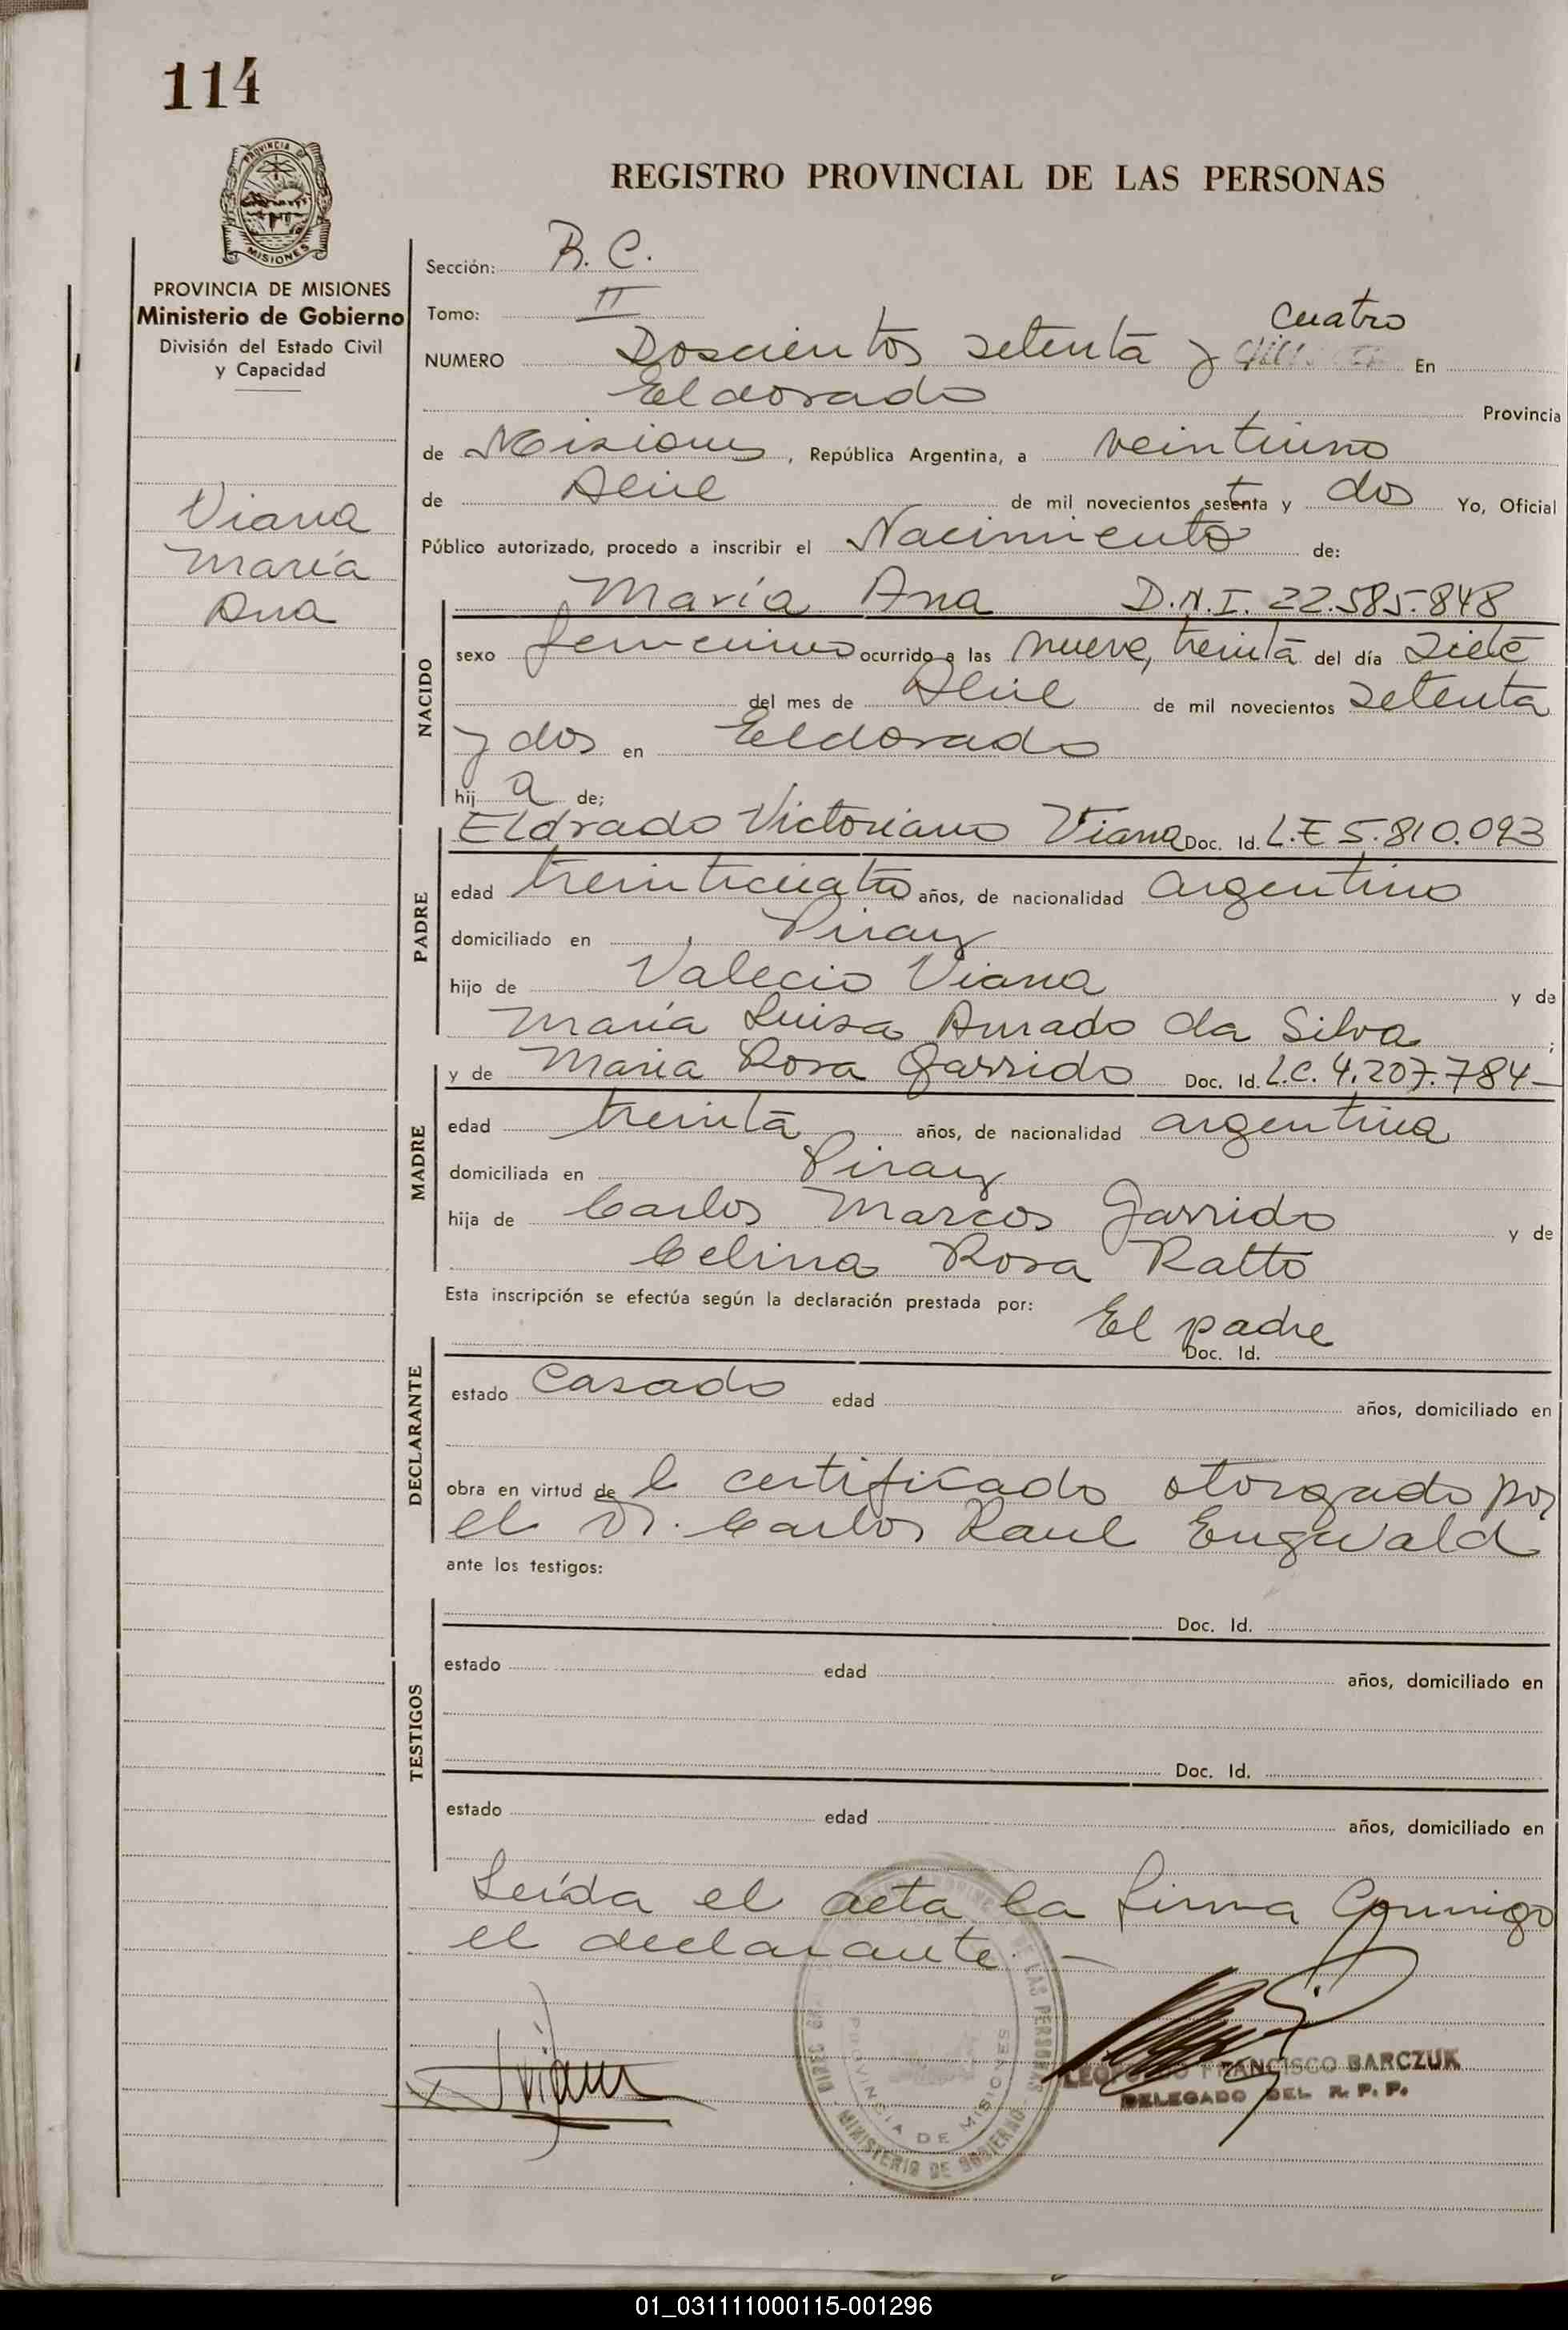 114
REGISTRO PROVINCIAL DE LAS PERSONAS
PROVINCIA DE MISIONES
Ministerio de Gobierno
División del Estado Civil
y Capacidad
Viana
María
Ana
Sección: R. C.
Tomo: II
cuatro
NUMERO Doscientos setenta y En
Eldorado Provincia
de Misiones, República Argentina, a veintiuno
de Abril de mil novecientos setenta y dos Yo, Oficial
Público autorizado, procedo a inscribir el Nacimiento de:
María Ana D.N.I. 22.585.848
NACIDO
sexo femenino ocurrido a las nueve, treinta del día siete
del mes de Abril de mil novecientos setenta
y dos en Eldorado
hij a de;
Eldrado Victoriano Viana Doc. Id. L.E 5.810.093
PADRE
edad treinticuatro años, de nacionalidad argentino
domiciliado en Piray
hijo de Valecio Viana y de
María Luisa Amado da Silva ;
y de María Rosa Garrido Doc. Id. L.C. 4.207.784-
MADRE
edad treinta años, de nacionalidad argentina
domiciliada en Piray
hija de Carlos Marcos Garrido y de
Celina Rosa Ratto
Esta inscripción se efectúa según la declaración prestada por: El padre
Doc. Id.
DECLARANTE
estado Casado edad años, domiciliado en
obra en virtud de l certificado otorgado por
el Dr. Carlos Raul Engwald
ante los testigos:
Doc. Id.
TESTIGOS
estado edad años, domiciliado en
Doc. Id.
estado edad años, domiciliado en
Leída el acta la firma conmigo
el declarante.-
PROVINCIA DE MISIONES
MINISTERIO DE GOBIERNO
DE LAS PERSONAS
FRANCISCO BARCZUK
DELEGADO DEL R. P. P.
01_031111000115-001296